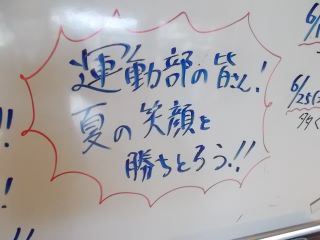 運動部の皆さん!
夏の笑顔を
勝ちとろう!!
6/
6/25(
!!
!
!!